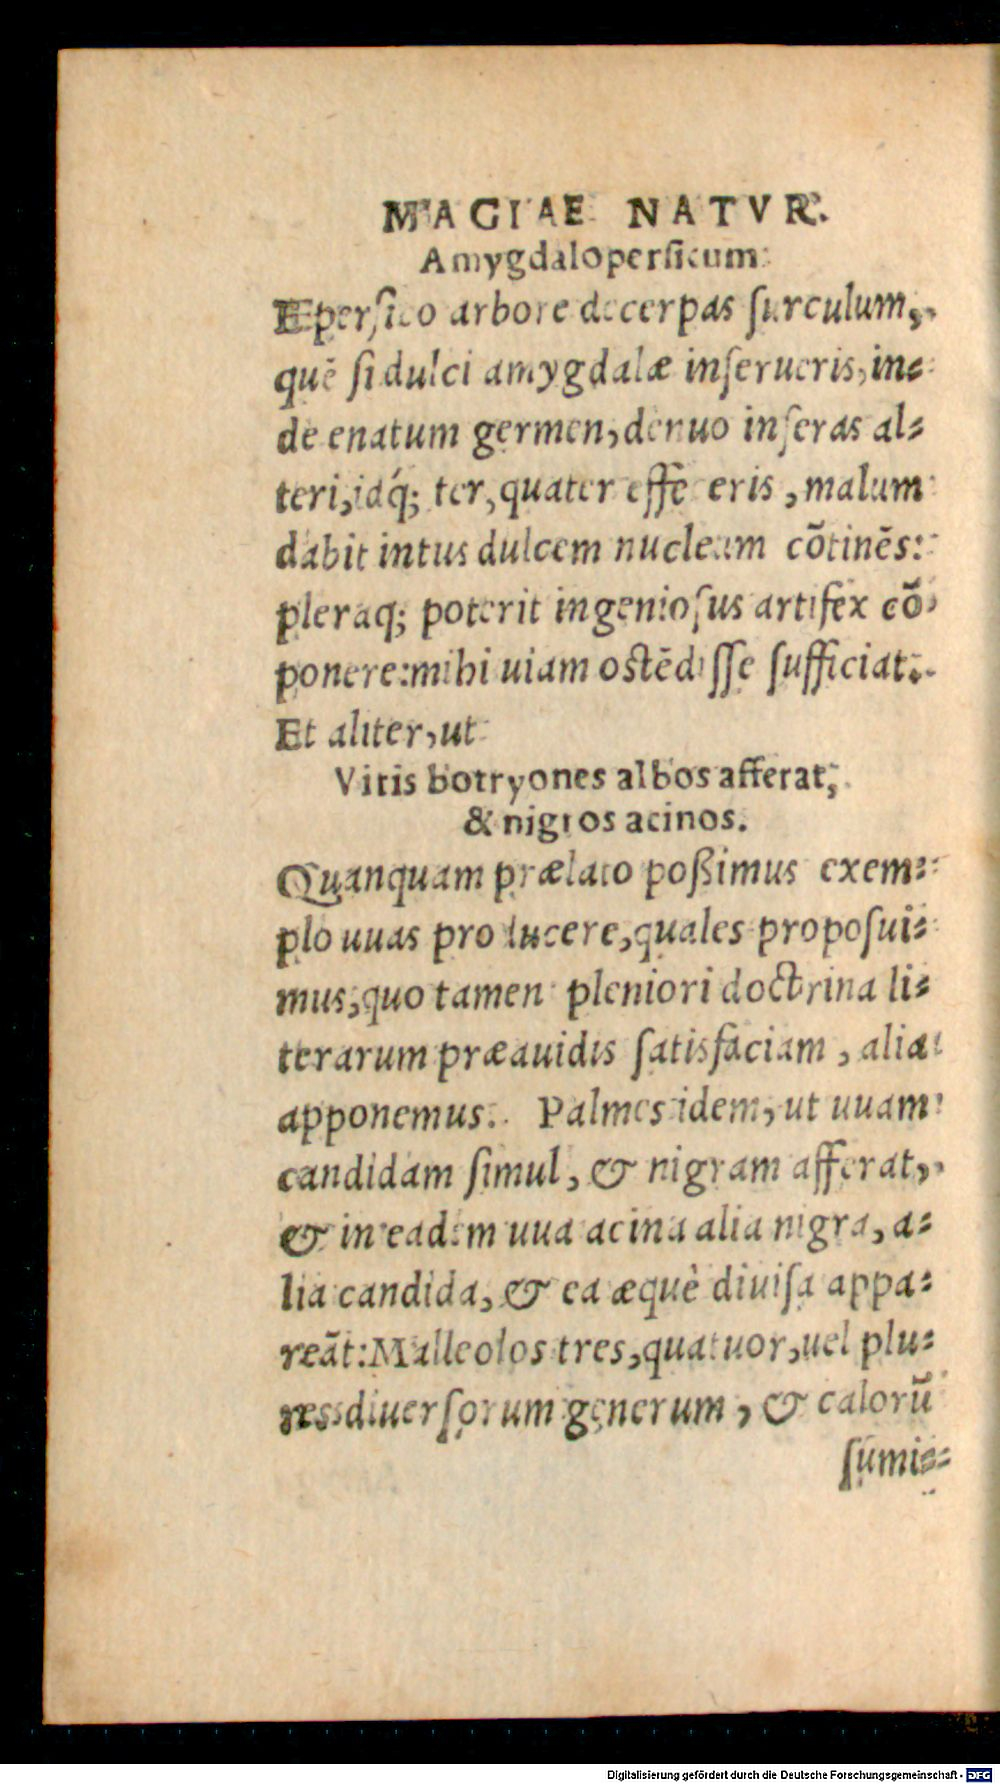 MAGIAE NATVR.
Amygdalopersicum
E persico arbore decerpas ſurculum,
quē ſi dulci amygdalæ inſerueris, in-
de enatum germen, denuo inſeras al-
teri, idq́; ter, quater effeceris, malum
dabit intus dulcem nucleum cōtinēs:
pleraq; poterit ingenioſus artifex cō-
ponere: mihi uiam oſtēdiſſe ſufficiat.
Et aliter, ut
Vitis botryones albos afferat,
& nigros acinos.
Quanquam prælato poßimus exem-
plo uuas producere, quales propoſui-
mus, quo tamen pleniori doctrina li-
terarum præauidis ſatisfaciam, alia
apponemus. Palmes idem, ut uuam
candidam ſimul, & nigram afferat,
& in eadem uua acina alia nigra, a-
lia candida, & ea æquè diuiſa appa-
reāt: Malleolos tres, quatuor, uel plu-
res diuerſorum generum, & calorū
ſumi-
Digitalisierung gefördert durch die Deutsche Forschungsgemeinschaft - DFG